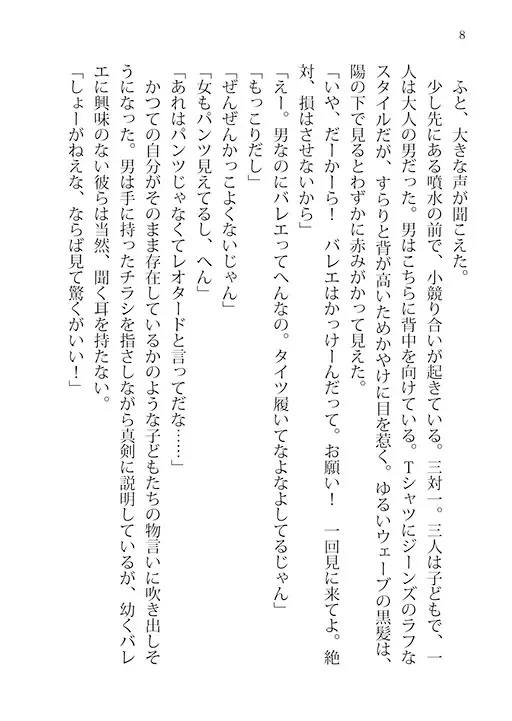 8
ふと、大きな声が聞こえた。
少し先にある噴水の前で、小競り合いが起きている。三対一。三人は子どもで、一
人は大人の男だった。男はこちらに背中を向けている。Tシャツにジーンズのラフな
スタイルだが、すらりと背が高いためかやけに目を惹く。ゆるいウェーブの黒髪は、
陽の下で見るとわずかに赤みがかって見えた。
「いや、だーかーら！　バレエはかっけーんだって。お願い！　一回見に来てよ。絶
対、損はさせないから」
「えー。男なのにバレエってへんなの。タイツ履いてなよなよしてるじゃん」
「もっこりだし」
「ぜんぜんかっこよくないじゃん」
「女もパンツ見えてるし、へん」
「あれはパンツじゃなくてレオタードと言ってだな……」
かつての自分がそのまま存在しているかのような子どもたちの物言いに吹き出しそ
うになった。男は手に持ったチラシを指さしながら真剣に説明しているが、幼くバレ
エに興味のない彼らは当然、聞く耳を持たない。
「しょーがねえな、ならば見て驚くがいい！」